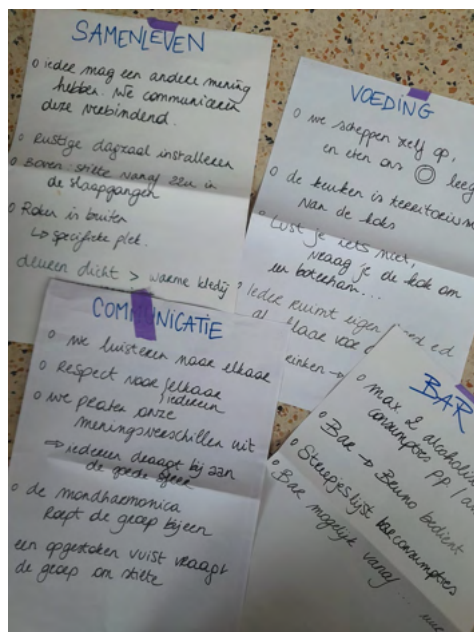 SAMENLEVEN
o ieder mag een andere mening
hebben. We communiceren
deze verbindend.
o Rustige dagzaal installeren
o Boven: stilte vanaf 22u in
de slaapgangen
o Roken is buiten
↳ specifieke plek.
deuren dicht > warme kledij
VOEDING
o we scheppen zelf op,
en eten ons leeg
o de keuken is territorium
van de koks
o Lust je iets niet,
vraag je de kok om
een boterham...
o Ieder ruimt eigen
elkaar voor
COMMUNICATIE
o we luisteren naar elkaar
o Respect voor elkaar
iedereen
o we praten onze
meningsverschillen uit
⇒ iedereen draagt bij aan
de goede sfeer
o de mondharmonica
roept de groep bijeen
een opgestoken vuist vraagt
de groep om stilte
BAR
o max 2
consumpties pp /
o Bar → Bruno bedient
o Streepjeslijst barconsumpties
o Bar mogelijk vanaf ...